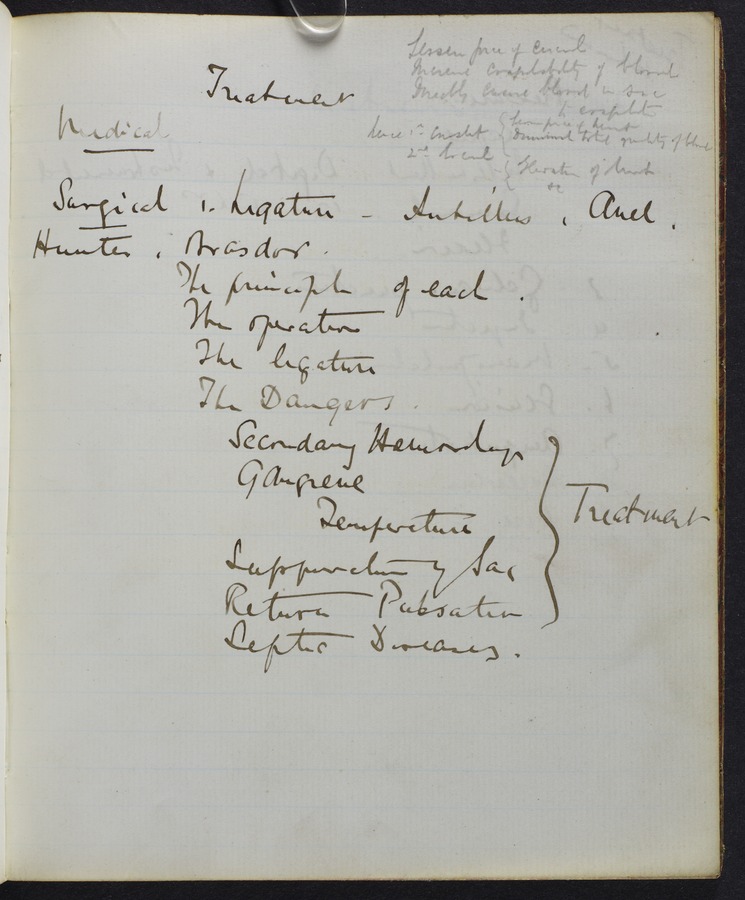 Lessen force of circul
Increase coagulability of blood
Treatment
Directly cause blood in sac
to coagulate
Medical
hence 1st constit { Lessen force of heart
Diminish total quantity of blood
2nd local { Elevation of limb
&c
Surgical 1. Ligature - Antillus, Anel,
Hunter, Brasdor.
The principle of each.
The operation
The ligature
The Dangers.
Secondary Haemorrhage
Gangrene
Temperature
Treatment
Suppuration of Sac
Return Pulsation
Septic Diseases.